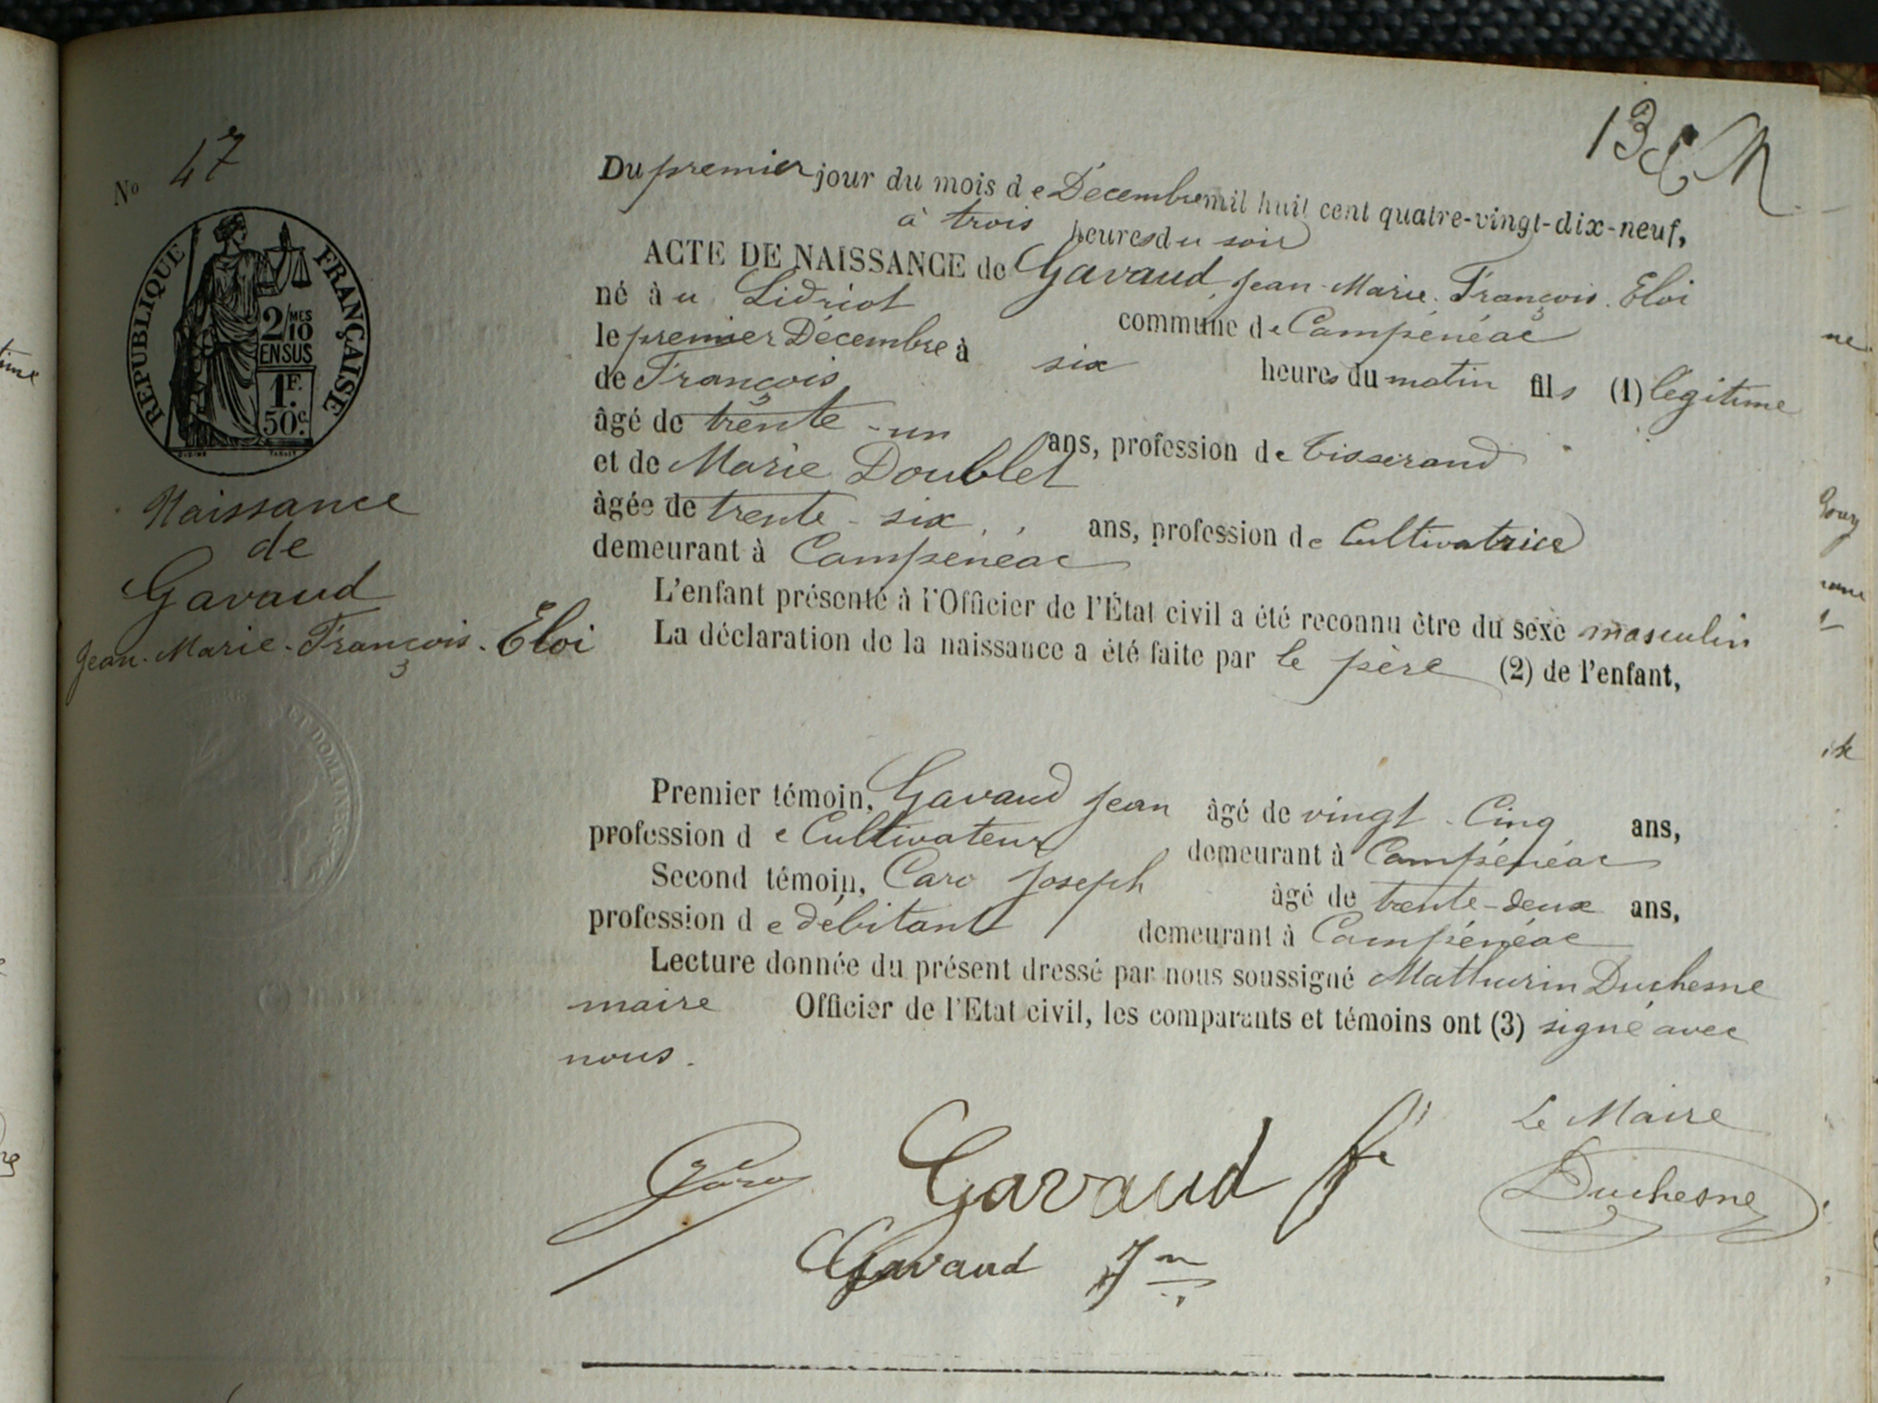 13 E M
No 47
RÉPUBLIQUE FRANÇAISE
2/10 MES
EN SUS
1 F.
50 c
Naissance
de
Gavaud
Jean-Marie-François-Eloi
Du premier jour du mois de Décembre mil huit cent quatre-vingt-dix-neuf,
à trois heures du soir
ACTE DE NAISSANCE de Gavaud Jean-Marie-François-Eloi
né à u Lidriot commune de Campénéac
le premier Décembre à six heures du matin fils (1) légitime
de François
âgé de trente-un ans, profession de tisserand
et de Marie Doublet
âgée de trente-six ans, profession de Cultivatrice
demeurant à Campénéac
L'enfant présenté à l'Officier de l'État civil a été reconnu être du sexe masculin
La déclaration de la naissance a été faite par le père (2) de l'enfant,
Premier témoin, Gavaud Jean âgé de vingt-Cinq ans,
profession de Cultivateur demeurant à Campénéac
Second témoin, Caro Joseph âgé de trente-deux ans,
profession de débitant demeurant à Campénéac
Lecture donnée du présent dressé par nous soussigné Mathurin Duchesne
maire Officier de l'Etat civil, les comparants et témoins ont (3) signé avec
nous.
Le Maire
Caro Gavaud fs Duchesne
Gavaud Jn